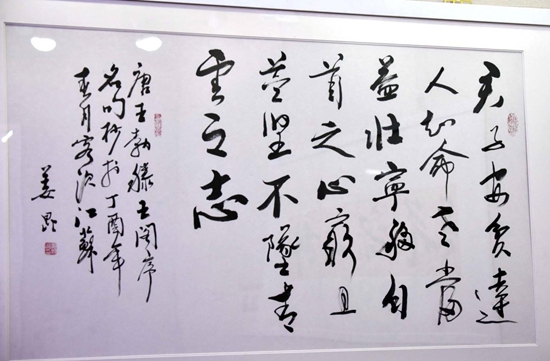 君子安貧達
人知命老當
益壮寧移白
首之心窮且
益坚不墜青
雲之志
唐王勃滕王阁序
名句抄於丁酉年
春月客次江蘇
姜昆